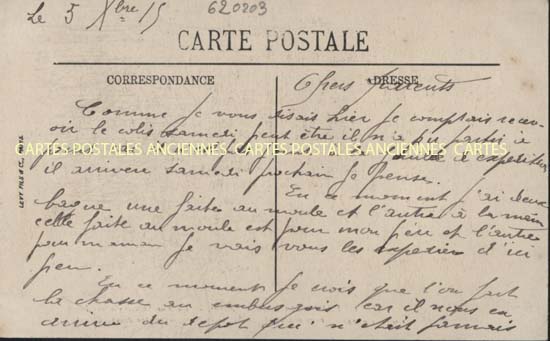 Le 5 Xbre 15
620203
CARTE POSTALE
CORRESPONDANCE
ADRESSE
Chers Parents
Comme je vous disais hier je comptais recev-
oir le colis samedi peut être il n'a pu partir à
CARTES POSTALES ANCIENNES CARTES POSTALES ANCIENNES CARTES
LEVY FILS & Cie
il arrivera samedi prochain je pense.
En ce moment j'ai deux
bague une faites au moule et l'autre à la main
cette faite au moule est pour mon père et l'autre
pour maman je vais vous les expedier d'ici
peu.
En ce moment je vois que l'on fait
la chasse au embusqués car il nous en
arrive du depot qui n'était jamais